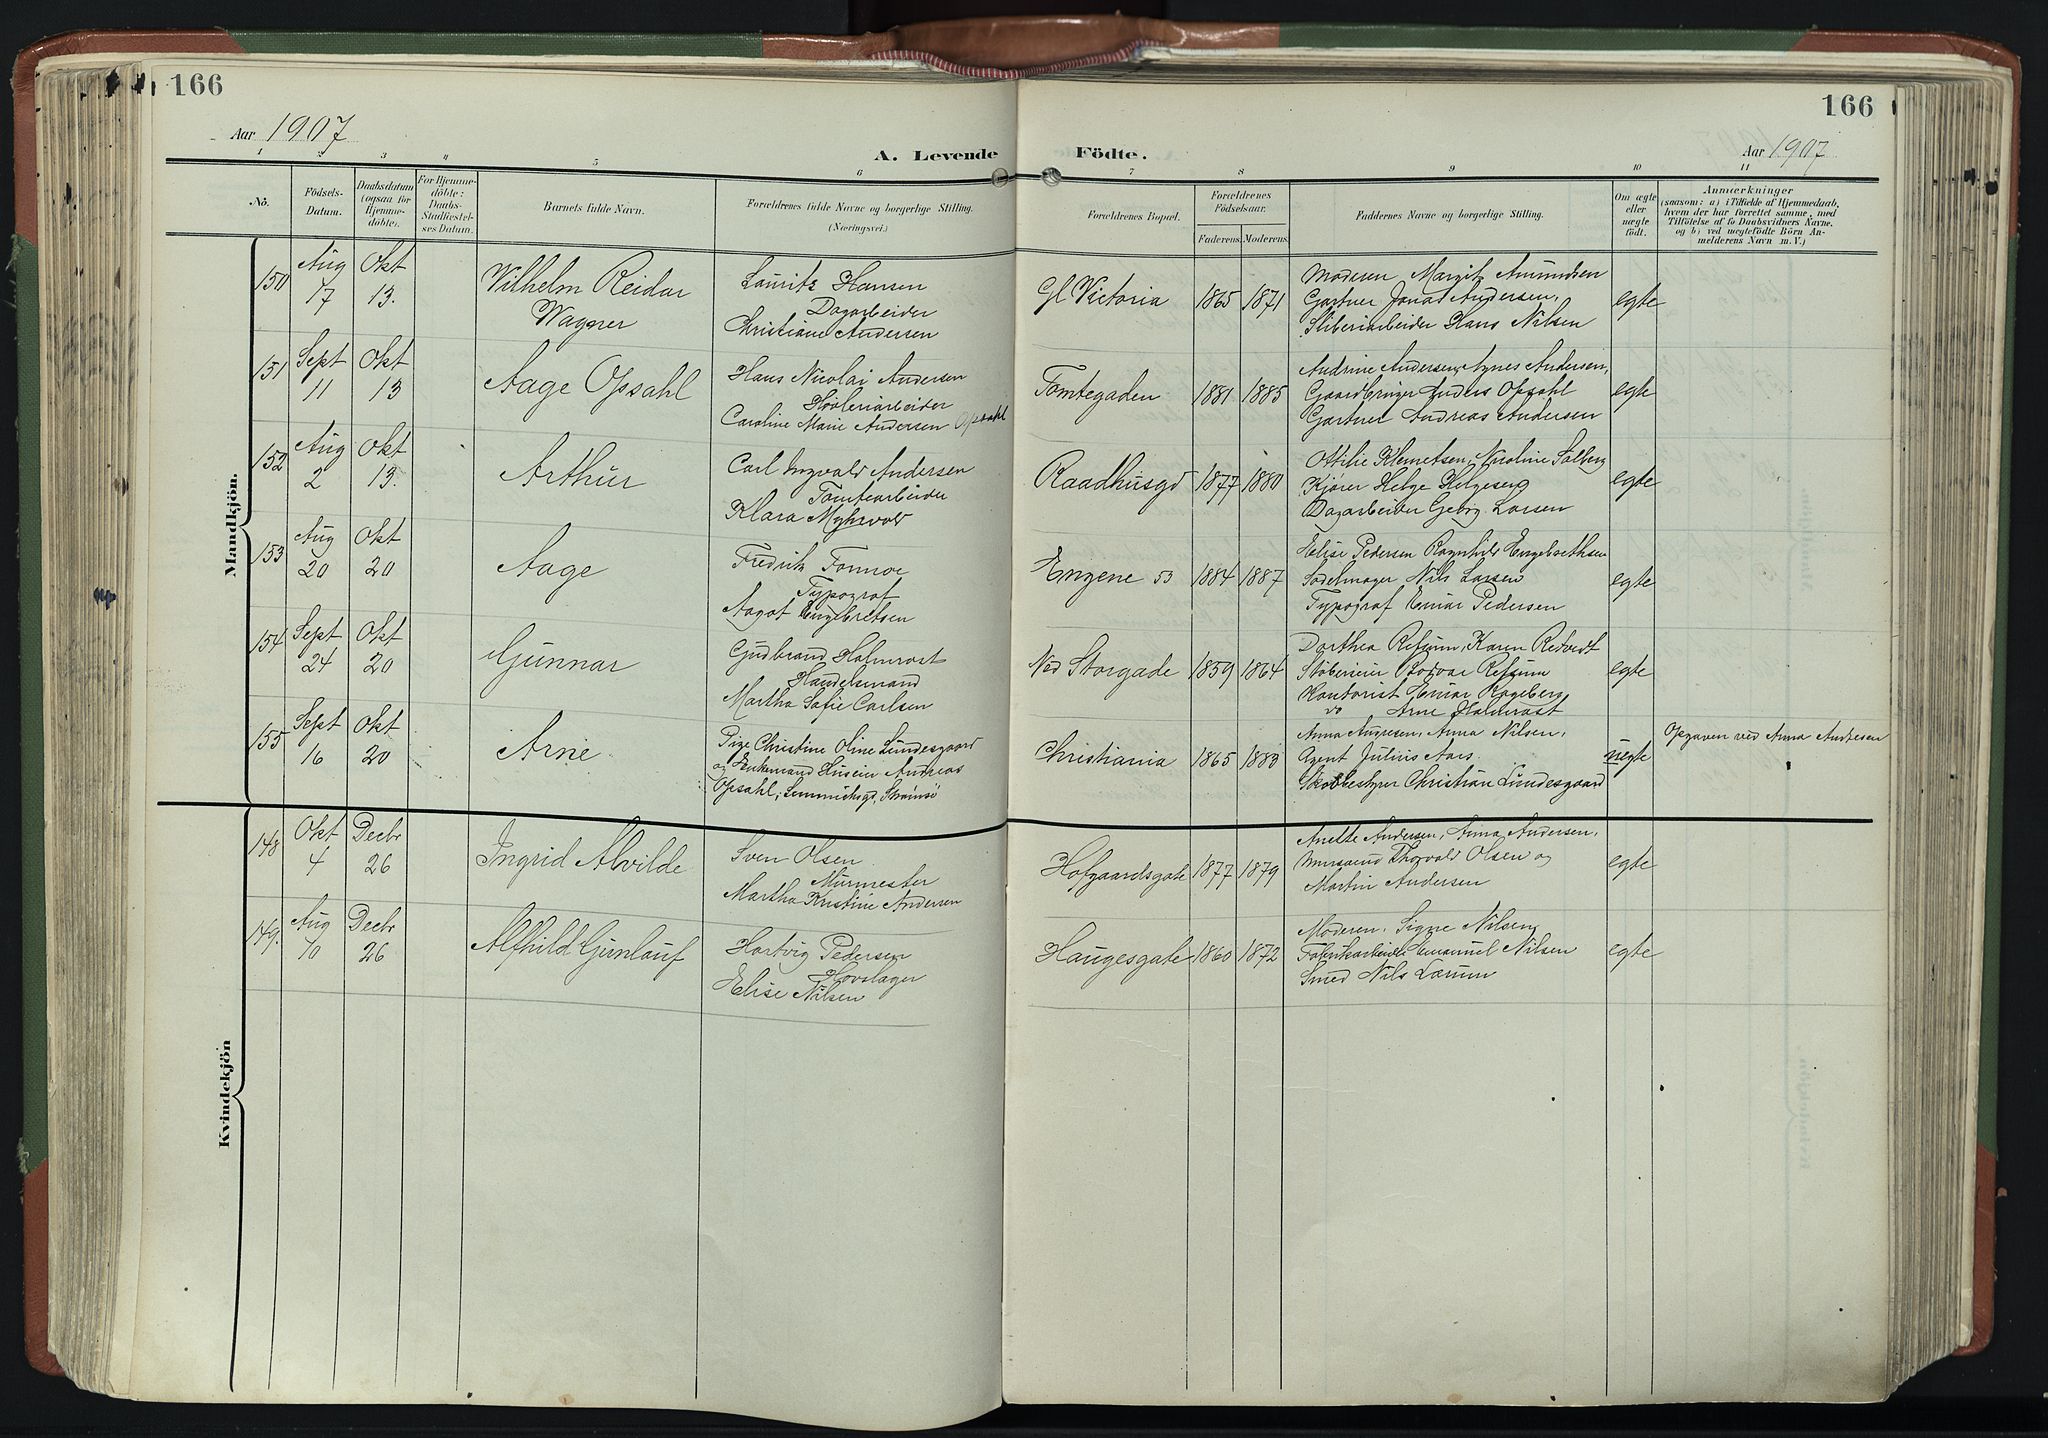 166
166
Aar 1907
A. Levende Födte.
Aar 1907
1 2 3 4 5 6 7 8 9 10 11
No.
Födsels-
Datum.
Daabsdatum
(ogsaa for
Hjemme-
döbte).
For Hjemme-
döbte:
Daabs-
Stadfæstel-
ses Datum.
Barnets fulde Navn.
Forældrenes fulde Navne og borgerlige Stilling.
(Næringsvei.)
Forældrenes Bopæl.
Forældrenes
Födselsaar.
Faderens. Moderens.
Faddernes Navne og borgerlige Stilling.
Om ægte
eller
uægte
födt.
Anmærkninger
(saasom: a) i Tilfælde af Hjemmedaab,
hvem der har forrettet samme, med
Tilföielse af to Daabsvidners Navne,
og b) ved uægtefödte Börn An-
melderens Navn m. V.)
Mandkjön.
150
Aug
17
Okt
13.
Wilhelm Reidar
Wagner
Lauritz Hansen
Dagarbeider
Christiane Andersen
Gl Victoria
1865 1871
Moderen Margit Amundsen
Gartner Jonas Andersen,
Sliberiarbeider Hans Nilsen
egte
151
Sept
11
Okt
13
Aage Opsahl
Hans Nicolai Andersen
Caroline Marie Andersen Opsahl
Tomtegaden
1881 1885
Andrine Andersen, Agnes Andersen,
Gaardbruger Anders Opsahl
Gartner Andreas Andersen
egte
152
Aug
2
Okt
13.
Arthur
Carl Ingvald Andersen
Tomtearbeider
Klara Myhrvold
Raadhusgd
1877 1880
Ottilie Klemetsen, Nicoline Solberg
Kjører Helge Helgesen
Dagarbeider Georg Larsen
egte
153
Aug
20
Okt
20
Aage
Fredrik Tonnoe
Typograf
Aagot Engebretsen
Engene 53
1884 1887
Elise Pedersen Ragnhild Engebrethsen
Sadelmager Nils Larsen
Typograf Einar Pedersen
egte
154
Sept
24
Okt
20
Gunnar
Gudbrand Holmrast
Handelsmand
Martha Sofie Carlsen
Ned Storgade
1859 1864
Dorthea Refsum, Karen Redvedt
Bodvar Refsum
Kontorist Einar Hageberg
do Arne Holmrast
egte
155
Sept
16
Okt
20
Arne
Pige Christine Oline Lundesgaard
og Enkemand Husein Andreas
Opsahl, Lemmichsgd, Strømsø
Christiania
1865 1883
Anna Andresen, Anna Nilsen,
Agent Julius Aars.
Skobestyrer Christian Lundesgaard
uegte
Opgaven ved Anna Andresen
Kvindekjön
148
Okt
4
Decbr
26
Ingrid Alvilde
Sven Olsen
Murmester
Martha Kristine Andersen
Hofgaardsgate
1877 1879
Anette Andersen, Anna Andersen,
Mursvend Thorvald Olsen og
Martin Andersen
egte
149.
Aug
10
Decbr
26
Alfhild Gunlauf
Hartvig Pedersen
Hovslager
Elise Nilsen
Haugesgate
1860 1872
Moderen, Signe Nilsen,
Fabrikarbeider Emanuel Nilsen
Smed Nils Larum
egte